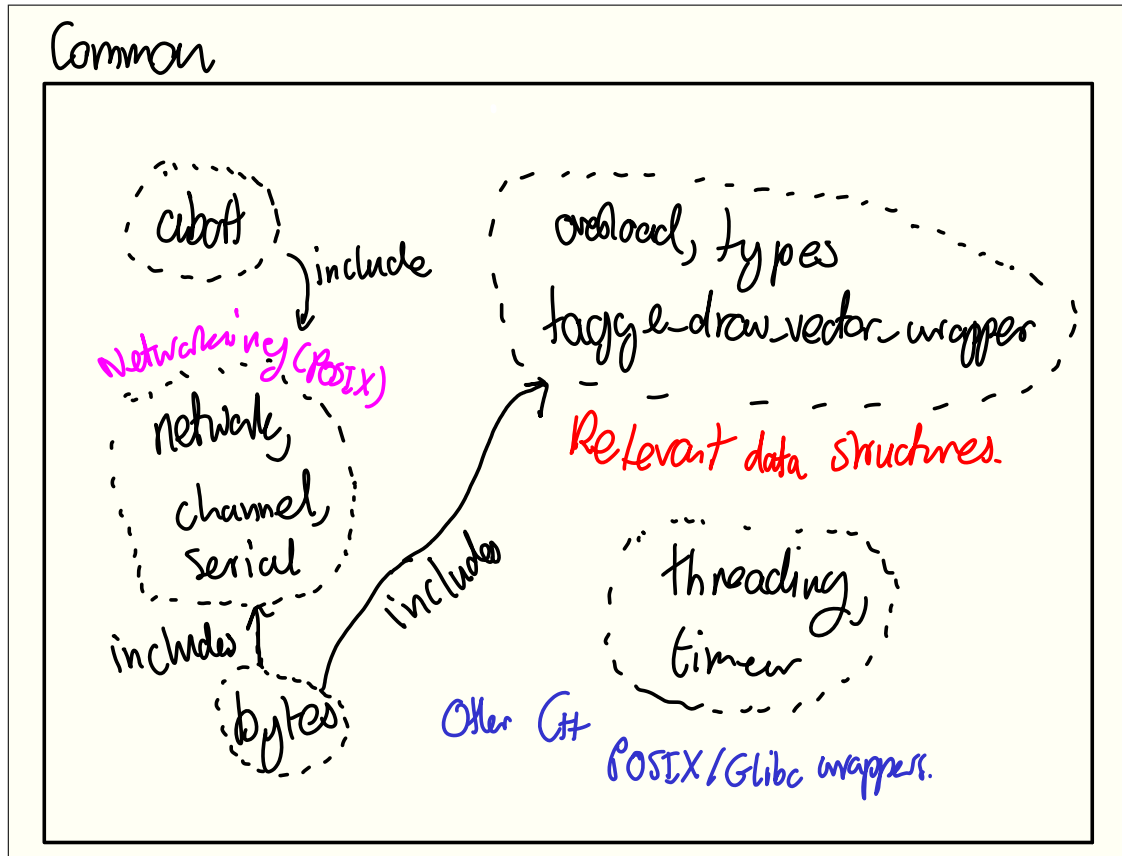 Common
abort
include
Networking (POSIX)
network,
channel,
serial
includes
bytes
includes
overload, types
tagge_draw_vector_wrapper
Relevant data structures.
threading,
timer
Other C++
POSIX/Glibc wrappers.